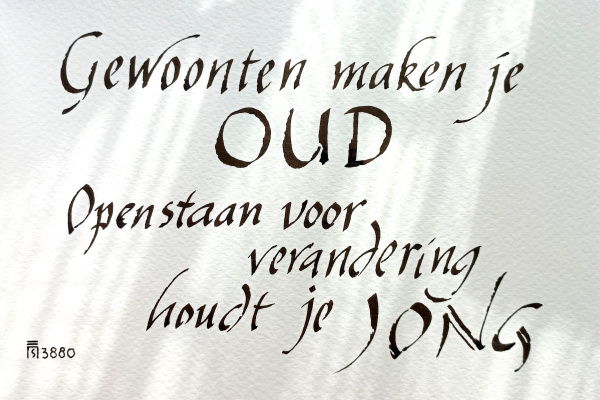 Gewoonten maken je
OUD
Openstaan voor
verandering
houdt je JONG
3880